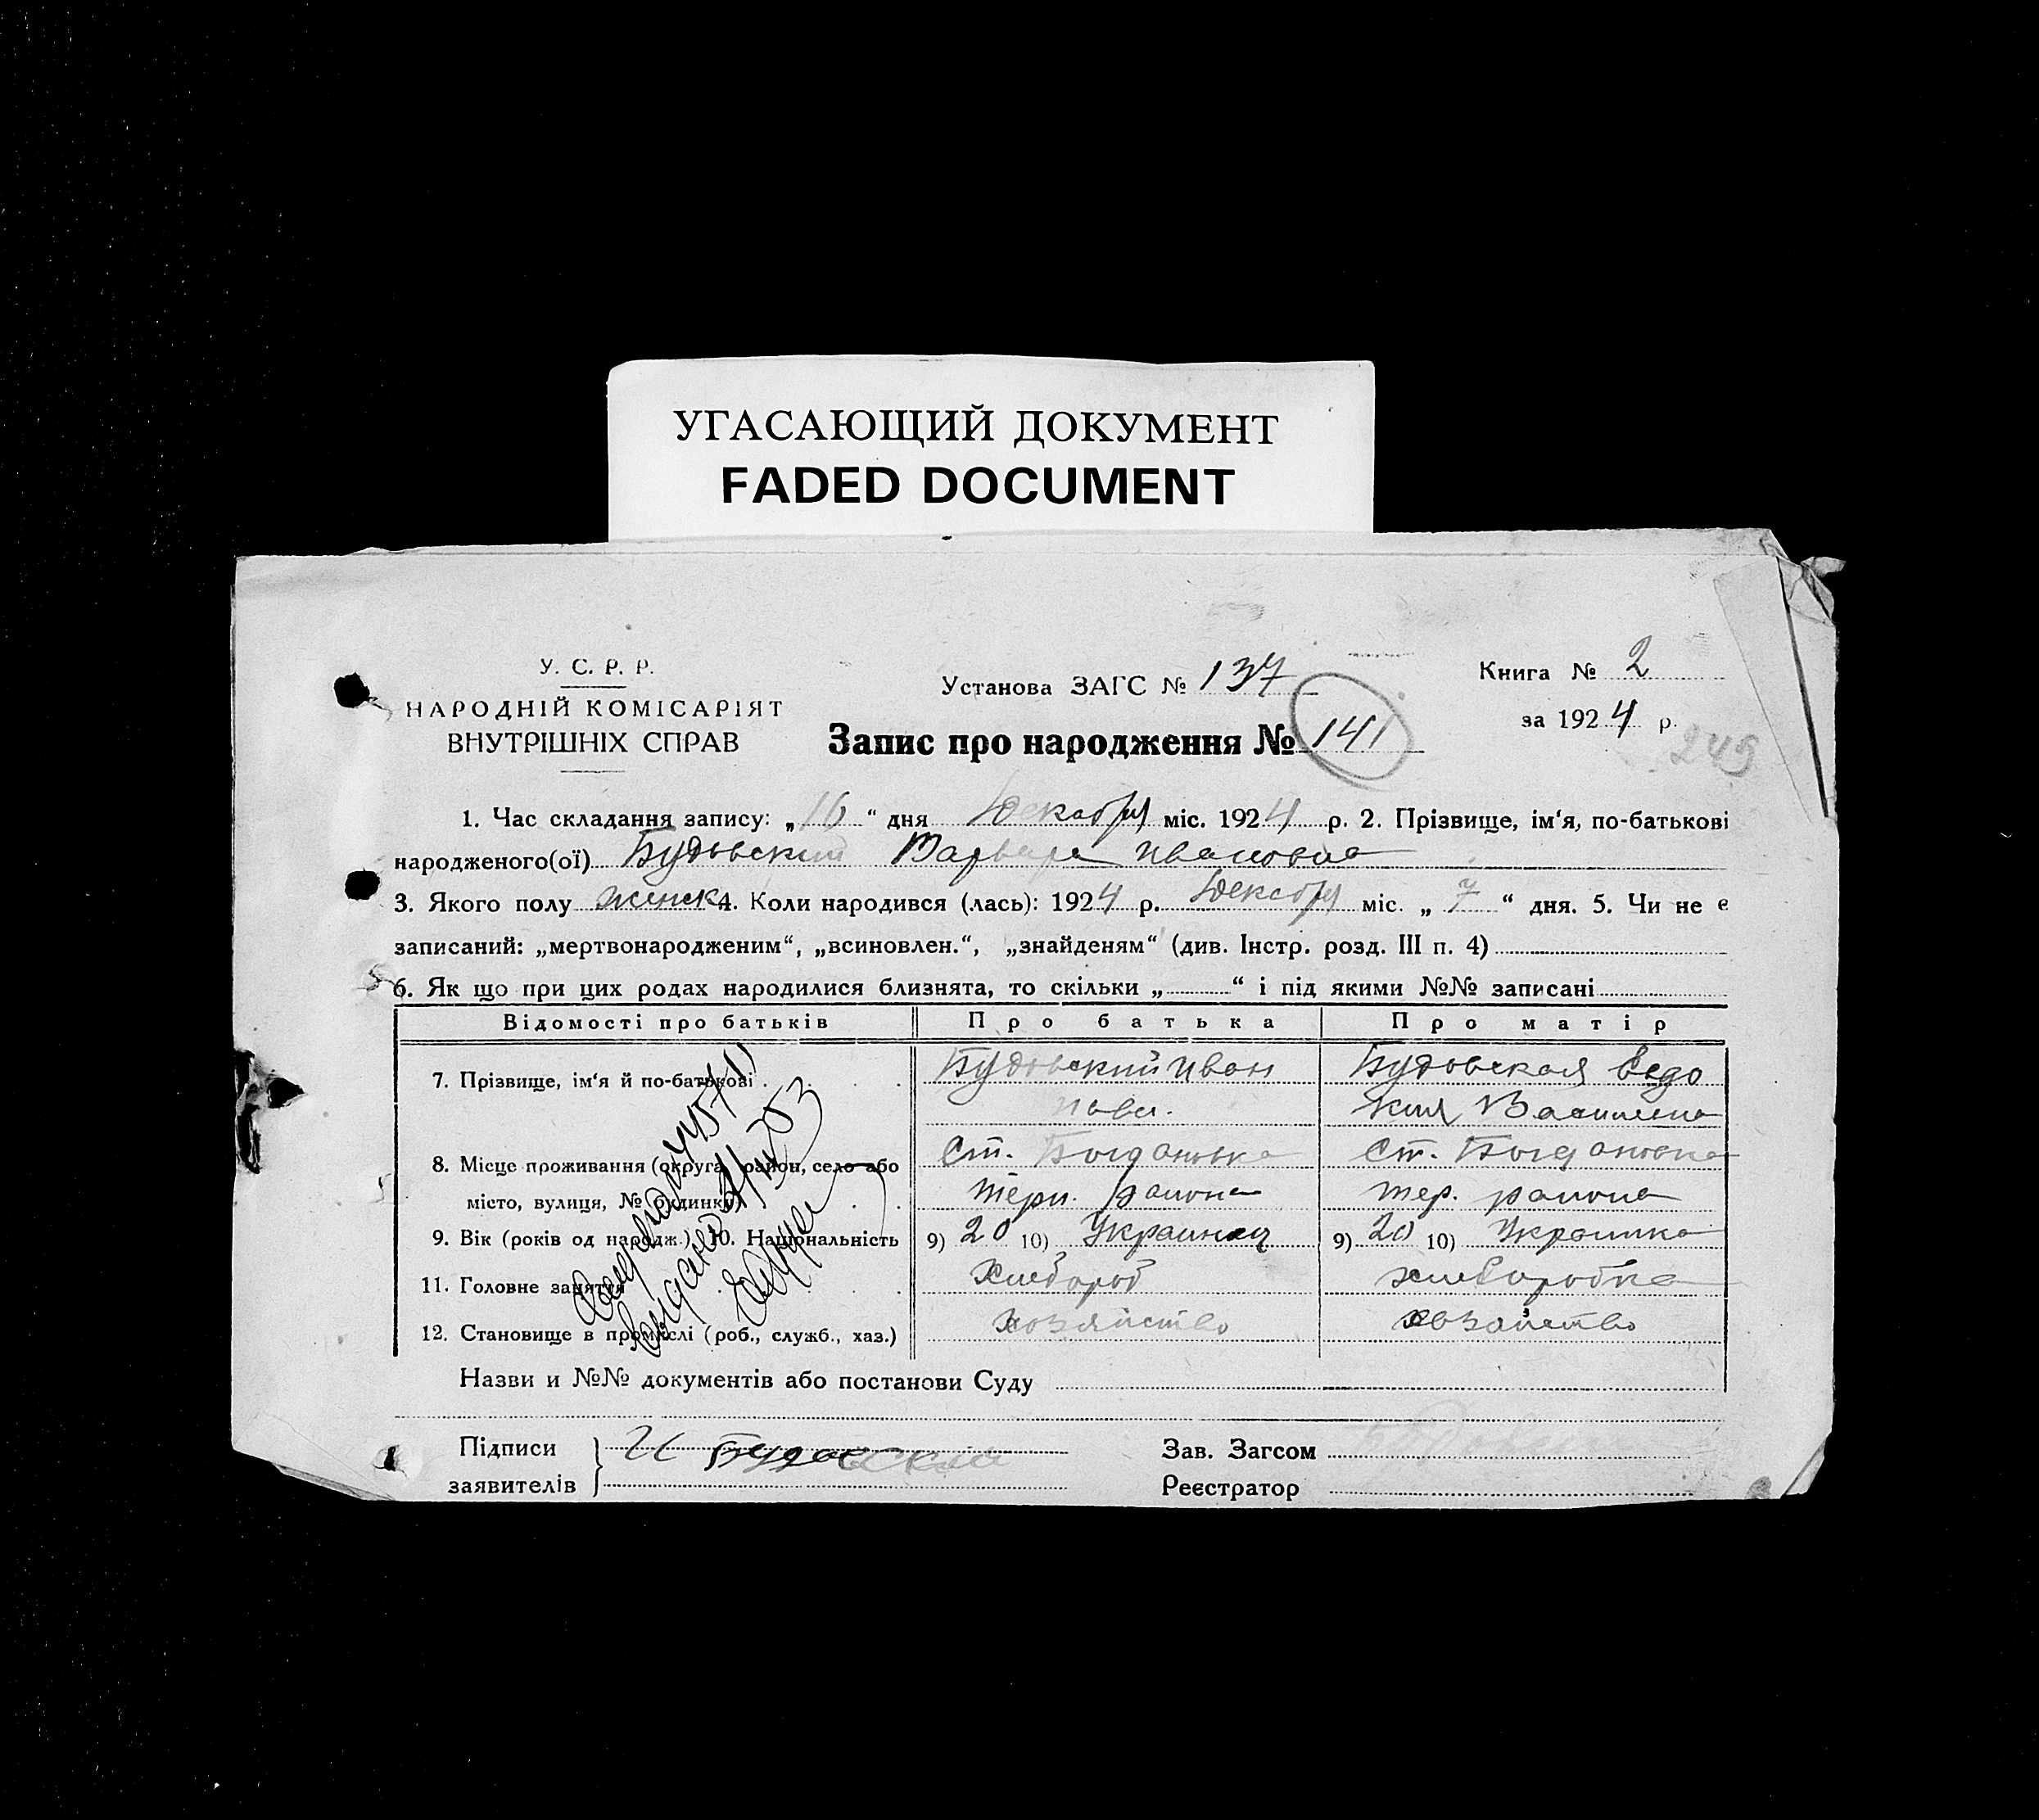 УГАСАЮЩИЙ ДОКУМЕНТ
FADED DOCUMENT
У. С. Р. Р.
НАРОДНІЙ КОМІСАРІЯТ
ВНУТРІШНІХ СПРАВ
Установа ЗАГС № 137
Запис про народження № 141
Книга № 2
за 1924 р.
249
1. Час складання запису: „16“ дня Декабря міс. 1924 р. 2. Прізвище, ім‘я, по-батькові
народженого(ої) Будовский Варвара Ивановна
3. Якого полу женск 4. Коли народився (лась): 1924 р. Декабря міс. „7“ дня. 5. Чи не є
записаний: „мертвонародженим“, „всиновлен.“, „знайденям“ (див. Інстр. розд. III п. 4)
6. Як що при цих родах народилися близнята, то скільки „ “ і під якими №№ записані
Відомості про батьків Про батька Про матір
7. Прізвище, ім‘я й по-батькові . Будовский Иван Будовская Евдо
павл. кия Василевна
8. Місце проживання (округа, район, село або Ст. Богдановка Ст. Богдановка
місто, вулиця, № будинку) терн. района тер. района
9. Вік (років од народж.) 10. Національність 9) 20 10) Украинец 9) 20 10) Украинка
11. Головне заняття Хлебороб хлеборобка
12. Становище в промислі (роб., служб., хаз.) хозяйство хозайство
Назви и №№ документів або постанови Суду
Підписи И Будовский Зав. Загсом
заявителів Реєстратор